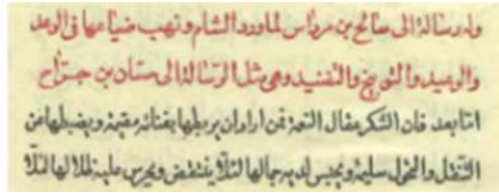 وله رسالة الى صالح بن مرداس لما ورد الشام ونهب ضياعها فى الوعد
والوعيد والتوبيخ والتفنيد وهى مثل الرسالة الى سنان بن جراح
امّا بعد فان الشكر عقال النعمة فمن اراد ان يربطها بفنائه مقيمة ويضبطها عن
التنقل والتحول سليمة ويحبس لديه جمالها لئلا ينتقض ويحرس عليه ظلالها لئلا